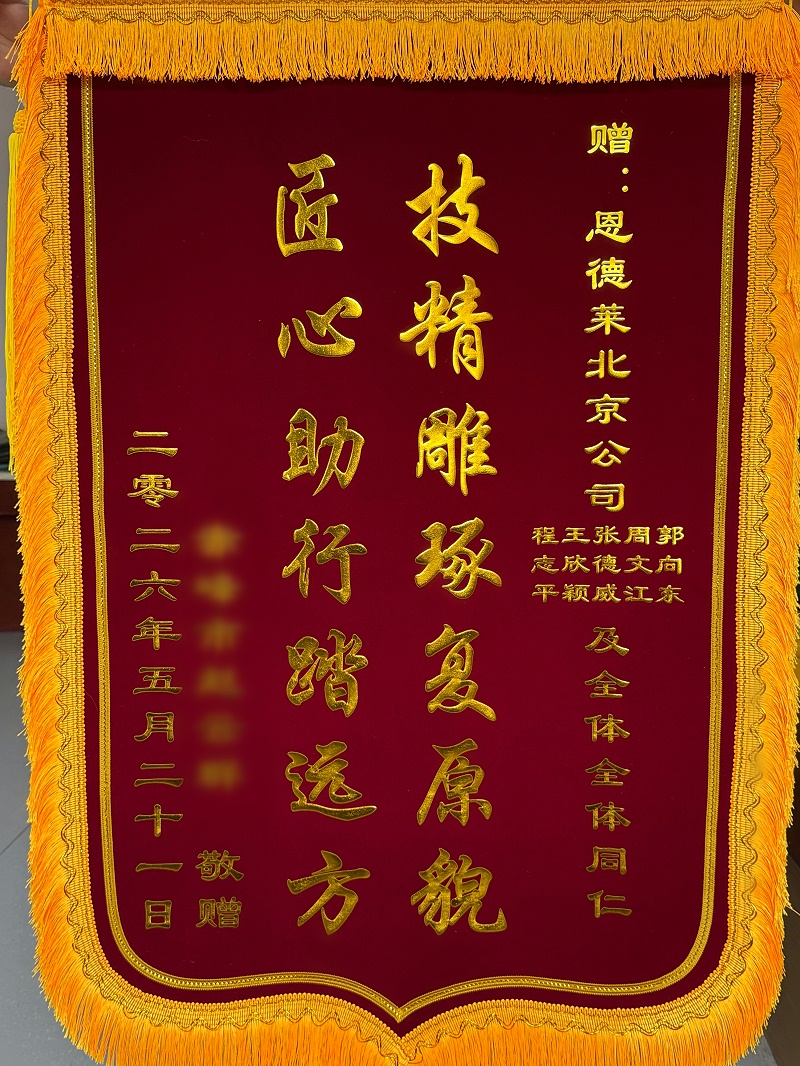 赠：恩德莱北京公司
郭向东
周文江
张德威
王欣颖
程志平
及全体全体同仁
技精雕琢复原貌
匠心助行踏远方
敬赠
二零二六年五月二十一日